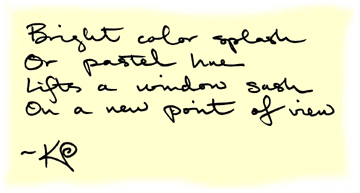 Bright color splash
Or pastel hue
Lifts a window sash
On a new point of view
~K@